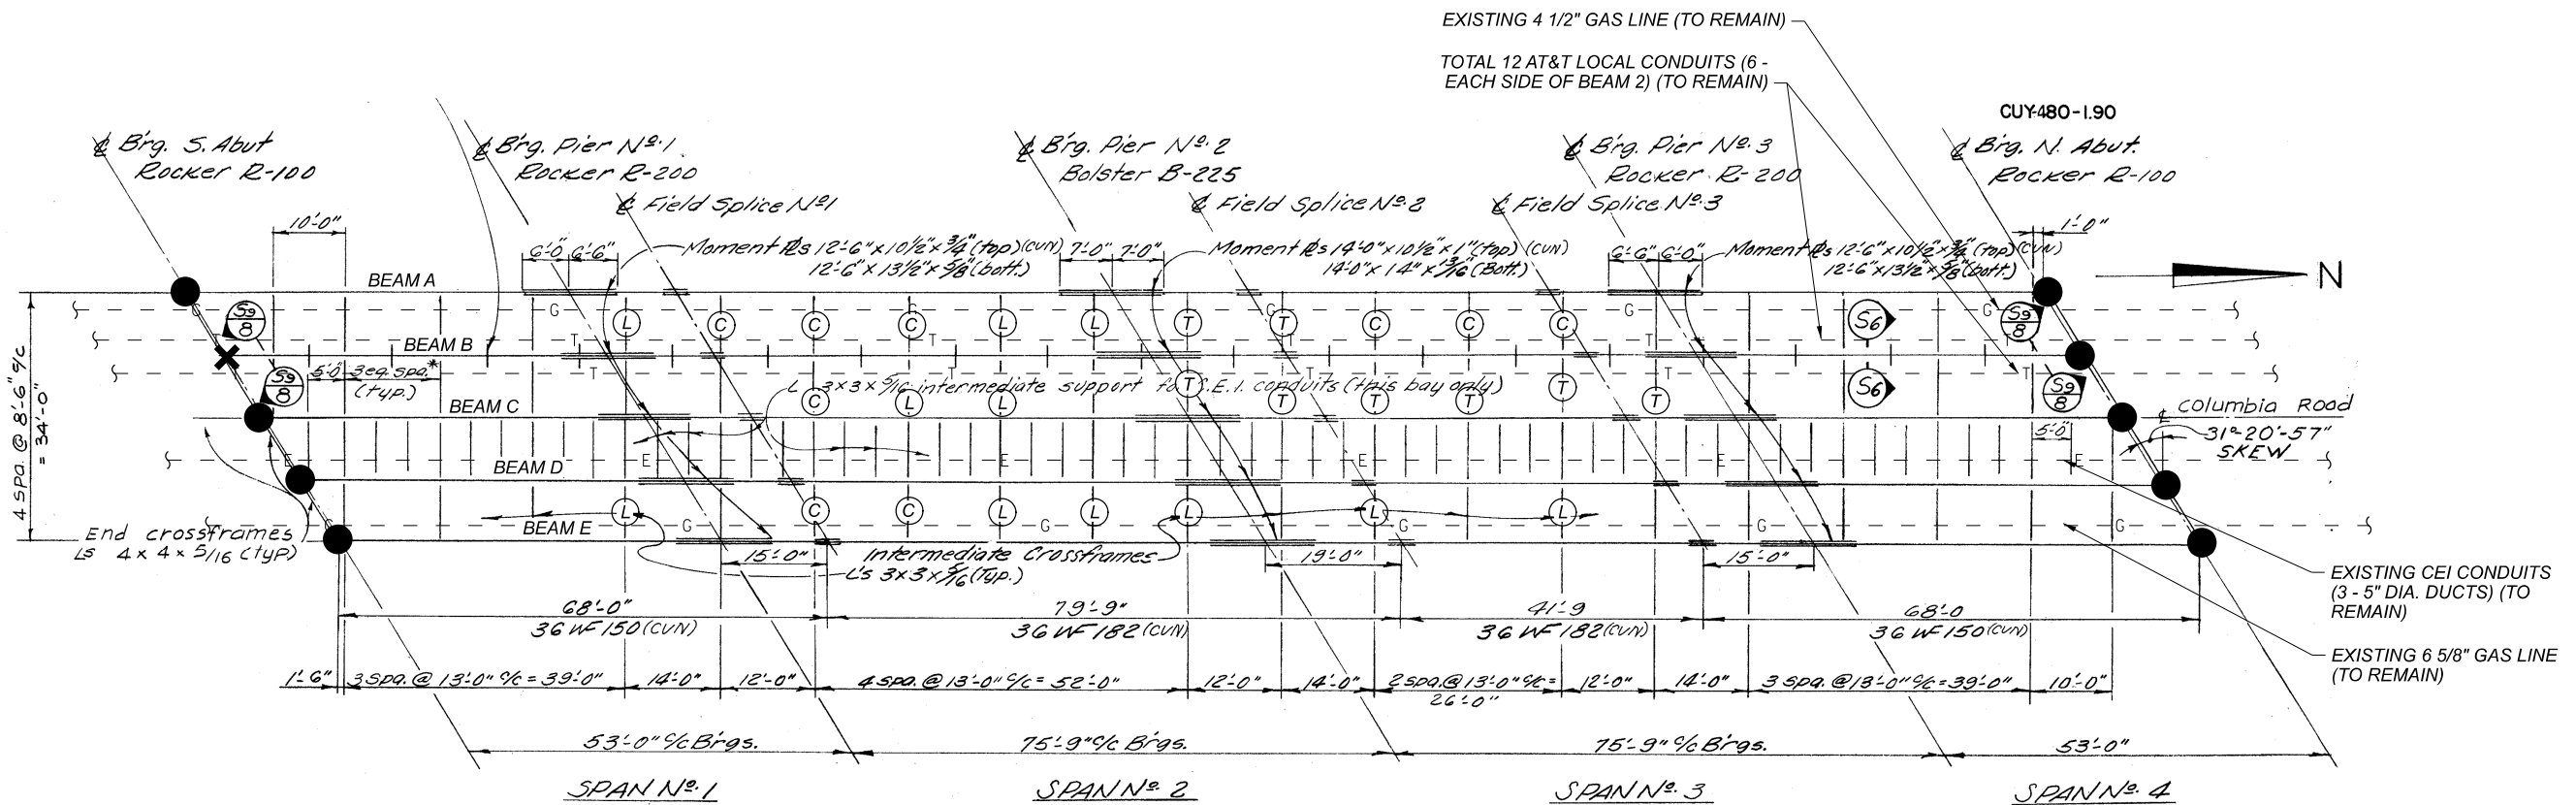 EXISTING 4 1/2" GAS LINE (TO REMAIN)
TOTAL 12 AT&T LOCAL CONDUITS (6 -
EACH SIDE OF BEAM 2) (TO REMAIN)
CUY-480-1.90
℄ Br'g. S. Abut
Rocker R-100
℄ Br'g. Pier Nº.1
Rocker R-200
℄ Field Splice Nº1
℄ Br'g. Pier Nº.2
Bolster B-225
℄ Field Splice Nº.2
℄ Br'g. Pier Nº.3
Rocker R-200
℄ Field Splice Nº.3
℄ Br'g. N. Abut.
Rocker R-100
10'-0"
6'-0" 6'-6"
Moment ℞s 12'-6"x10½"x¾"(top)(CVN)
12'-6"x13½"x⅝"(bott.)
7'-0" 7'-0"
Moment ℞s 14'-0"x10½"x1"(top)(CVN)
14'-0"x14"x13/16"(Bott.)
6'-6" 6'-0"
Moment ℞s 12'-6"x10½"x¾"(top)(CVN)
12'-6"x13½"x⅝"(bott.)
1'-0"
N
BEAM A
G G G G
S9
8
L C C C L L T T C C C
S6
S9
8
BEAM B
T T T T T
S9
8
5'-0" 3 eq. spa.*
(typ.)
T T T
L 3x3x5/16 intermediate support for C.E.I. conduits (this bay only)
C L L T T T T T T
S6
S9
8
BEAM C
℄ Columbia Road
31°-20'-57"
SKEW
5'-0"
4 spa. @ 8'-6" c/c
= 34'-0"
E E E E E
BEAM D
L C C L L L L L
BEAM E
G G G G G
End crossframes
Ls 4 x 4 x 5/16 (typ)
15'-0"
Intermediate Crossframes
L's 3x3x5/16 (Typ.)
19'-0"
15'-0"
EXISTING CEI CONDUITS
(3 - 5" DIA. DUCTS) (TO
REMAIN)
68'-0"
36 WF 150 (CVN)
79'-9"
36 WF 182 (CVN)
41'-9
36 WF 182 (CVN)
68'-0
36 WF 150 (CVN)
EXISTING 6 5/8" GAS LINE
(TO REMAIN)
1'-6" 3 spa. @ 13'-0" c/c = 39'-0" 14'-0" 12'-0" 4 spa. @ 13'-0" c/c = 52'-0" 12'-0" 14'-0" 2 spa. @ 13'-0" c/c = 12'-0" 14'-0" 3 spa. @ 13'-0" c/c = 39'-0" 10'-0"
26'-0"
53'-0" c/c Br'gs.
75'-9" c/c Br'gs.
75'-9" c/c Br'gs.
53'-0"
SPAN Nº.1
SPAN Nº.2
SPAN Nº.3
SPAN Nº.4